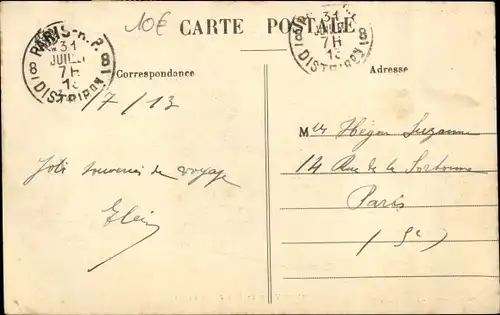 10€
CARTE POSTALE
PARIS-R.P.
81 81
31
JUILL
7H
13
DISTRIBON
31
7H
13
81
DISTRIBON
Correspondance
Adresse
/7/13
Joli souvenir de voyage
Mlle Hégon Suzanne
14 Rue de la Sorbonne
Paris
(5e)